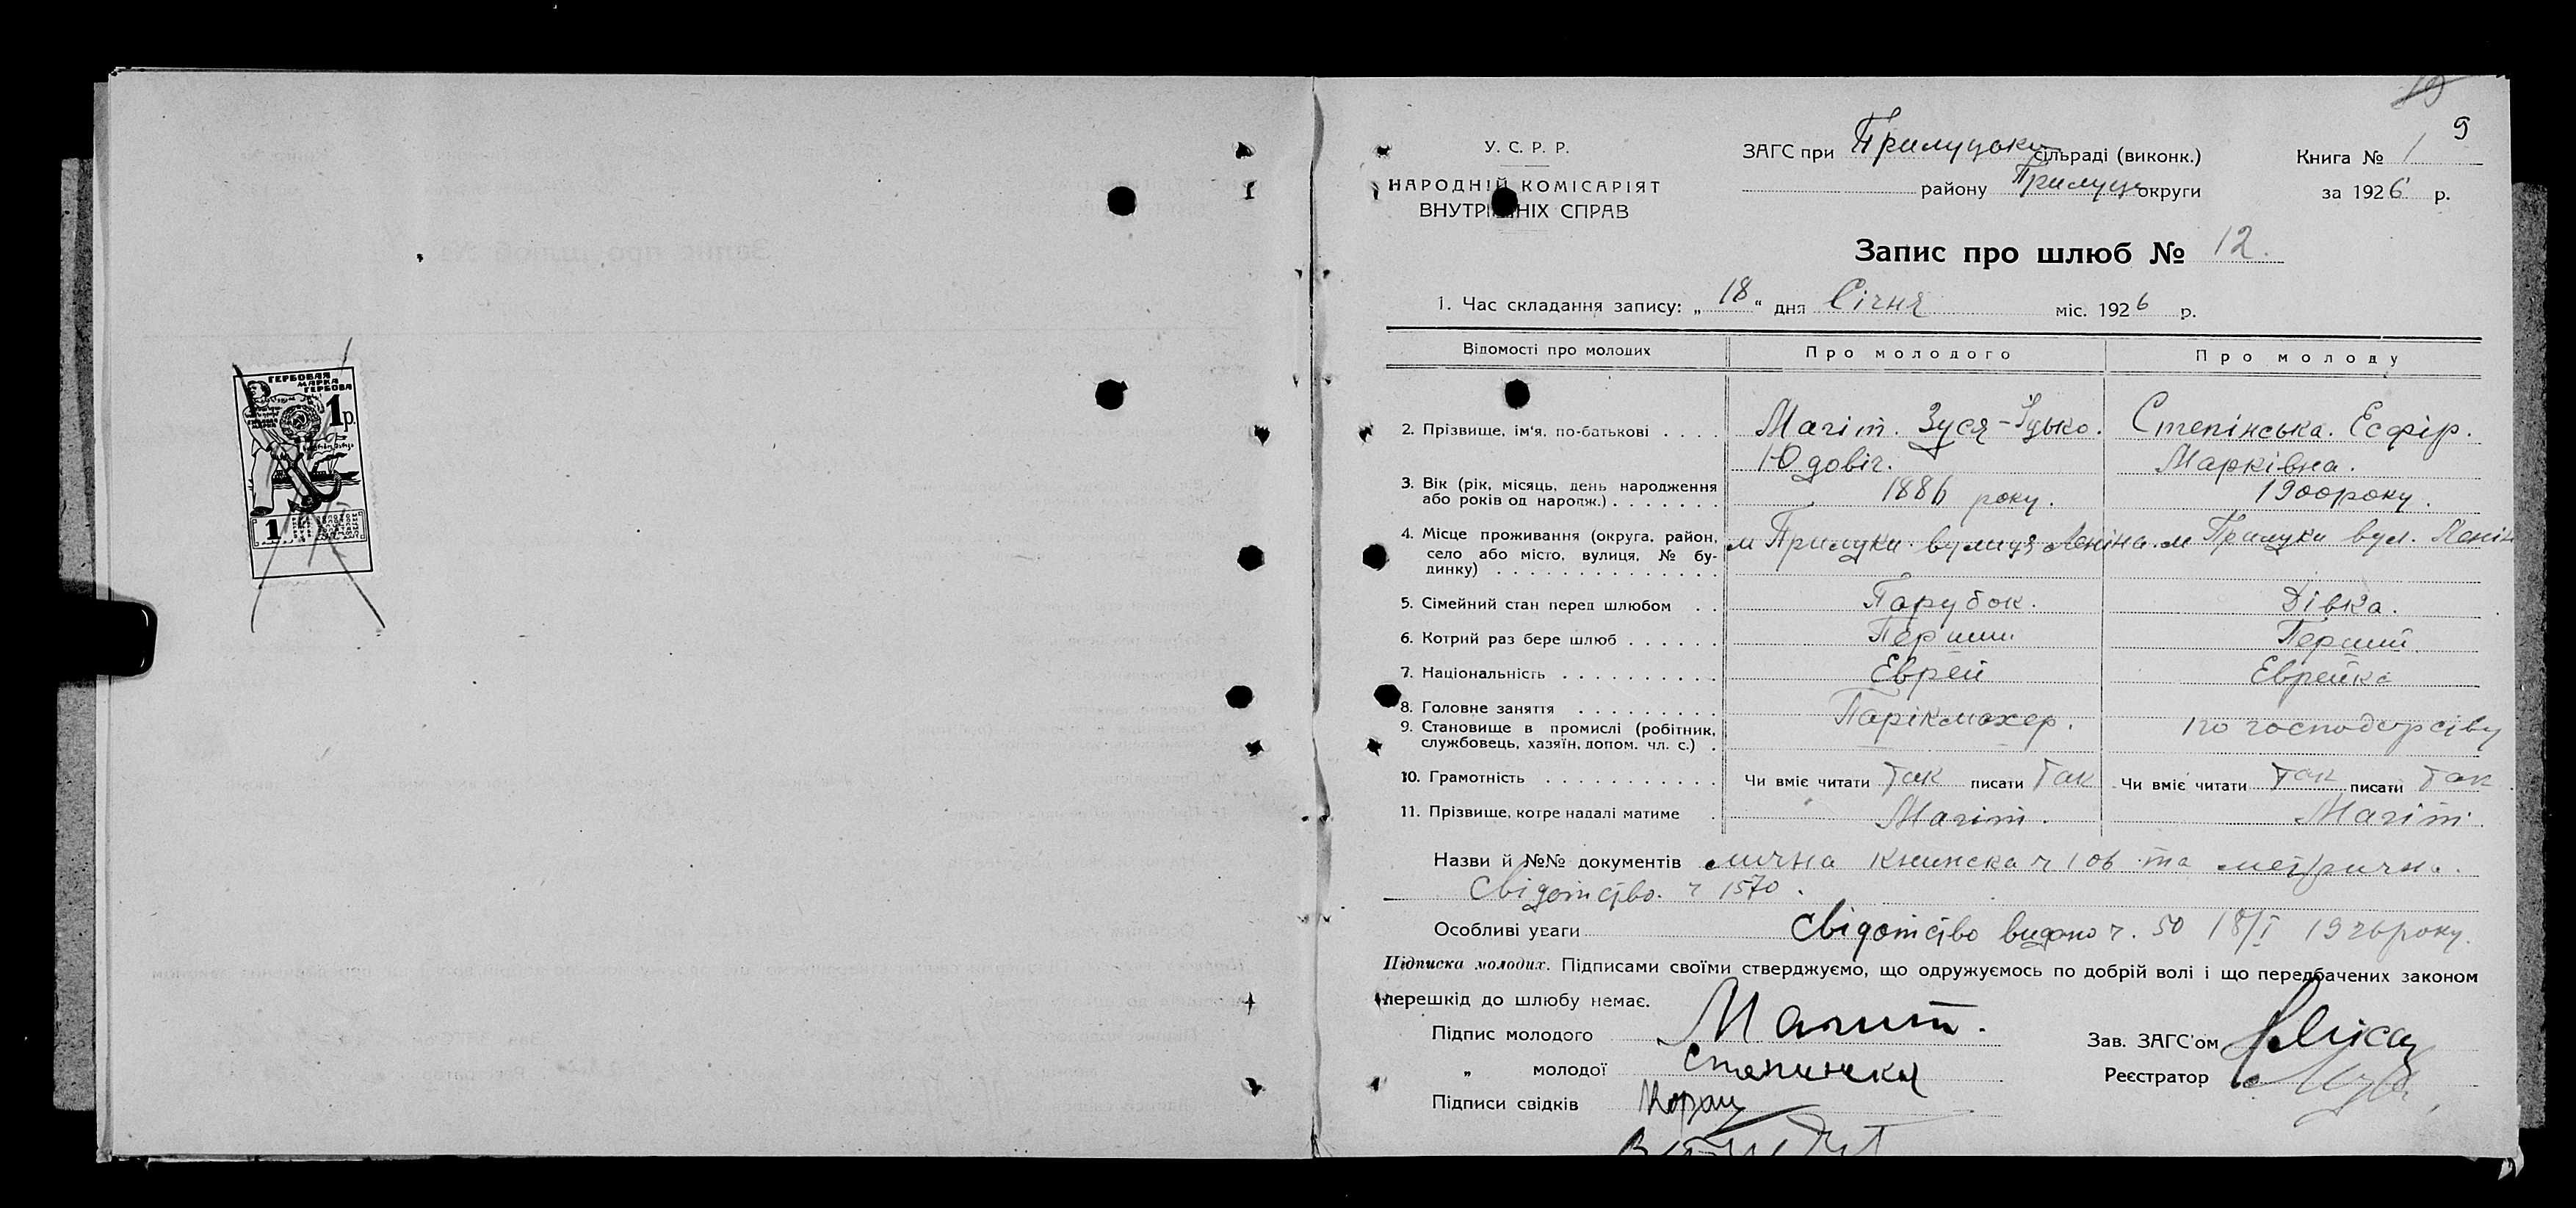 ГЕРБОВАЯ
МАРКА
ГЕРБОВА
1 р.
1
19
9
У. С. Р. Р.
НАРОДНІЙ КОМІСАРІЯТ
ВНУТРІШНІХ СПРАВ
ЗАГС при Прилуцьки сільраді (виконк.)
району Прилуць округи
Книга № 1
за 1926 р.
Запис про шлюб № 12.
1. Час складання запису: „18“ дня Січня міс. 1926 р.
Відомості про молодих Про молодого Про молоду
2. Прізвище, ім'я, по-батькові . . . . Магіт. Зуся- . Степінська. Есфір.
Юдовіч. Марківна.
3. Вік (рік, місяць, день народження
або років од народж.) . . . . . . . 1886 року. 1900 року.
4. Місце проживання (округа, район,
село або місто, вулиця, № бу-
динку) . . . . . . . . . . . . . . м Прилуки вулиця Леніна. м Прилуки вул. Ленін
5. Сімейний стан перед шлюбом . . Парубок. Дівка.
6. Котрий раз бере шлюб . . . . . . Перший Перший.
7. Національність . . . . . . . . . . Еврей Еврейка
8. Головне заняття . . . . . . . . . Парікмахер. по господарству
9. Становище в промислі (робітник,
службовець, хазяїн, допом. чл. с.) .
10. Грамотність . . . . . . . . . . . Чи вміє читати так писати так Чи вміє читати так писати так
11. Прізвище, котре надалі матиме . Магіт. Магіт.
Назви й №№ документів лична книжска ч 106 та метрична.
Свідотство. ч 1570.
Особливі уваги Свідотство видано ч. 50 18/I 1926 року.
Підписка молодих. Підписами своїми стверджуємо, що одружуємось по добрій волі і що передбачених законом
перешкід до шлюбу немає.
Підпис молодого Магит.
„ молодої Степинска
Підписи свідків
Зав. ЗАГС'ом
Реєстратор